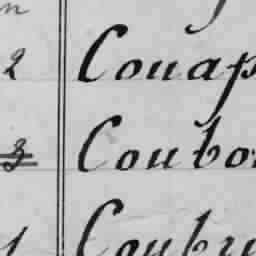 2 Couap
3 Coubo
1 Coubr